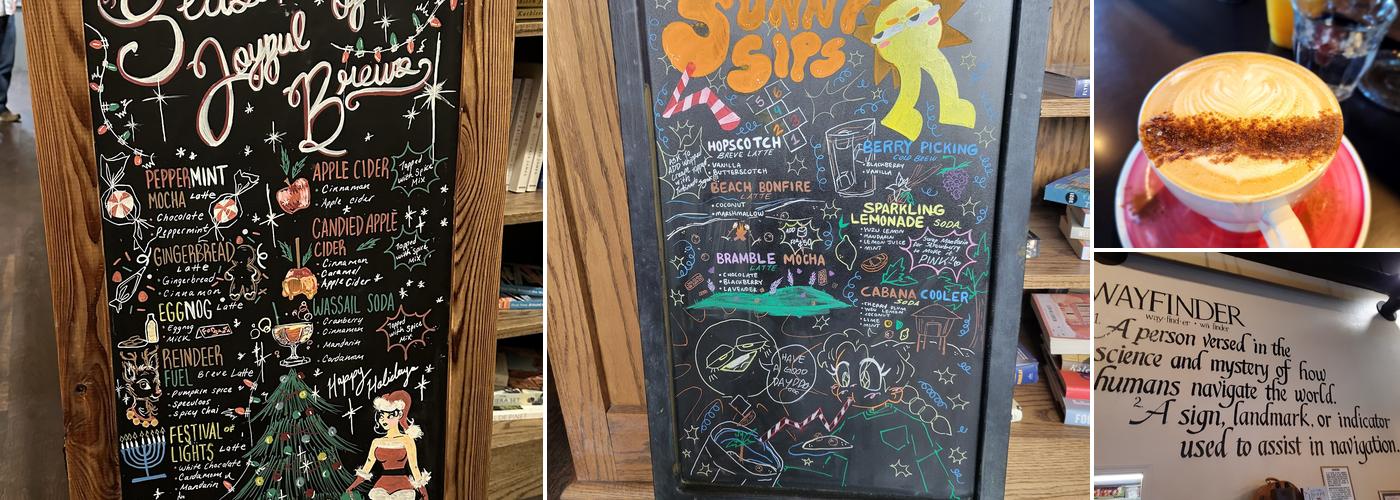 Season of
Joyful
Brews
PEPPERMINT
MOCHA Latte
• Chocolate
• Peppermint
GINGERBREAD
Latte
• Gingerbread
• Cinnamon
EGGNOG Latte
• Eggnog
• Milk
REINDEER
FUEL Breve Latte
• Pumpkin spice
• Speculoos
• Spicy Chai
FESTIVAL of
LIGHTS Latte
• White Chocolate
• Cardamom
• Mandarin
APPLE CIDER
• Cinnamon
• Apple cider
Topped
with Spice
Mix
CANDIED APPLE
CIDER
• Cinnamon
• Caramel
• Apple Cider
Topped
with Spice
Mix
WASSAIL SODA
• Cranberry
• Cinnamon
• Mandarin
• Cardamom
Topped
with Spice
Mix
Happy
Holidays
SUNNY
SIPS
HOPSCOTCH
BREVE LATTE
• VANILLA
• BUTTERSCOTCH
BEACH BONFIRE
LATTE
• COCONUT
• MARSHMALLOW
BRAMBLE MOCHA
LATTE
• CHOCOLATE
• BLACKBERRY
• LAVENDER
BERRY PICKING
COLD BREW
• BLACKBERRY
• VANILLA
SPARKLING
LEMONADE SODA
• YUZU LEMON
• MANDARIN
• LEMON JUICE
• MINT
Swap Mandarin
for Strawberry
to Make it
PINK!!
CABANA COOLER
SODA
• YUZU LEMON
• COCONUT
• LIME
• MINT
HAVE
A GOOD
DAY
WAYFINDER
way·find·er
1. A person versed in the
science and mystery of how
humans navigate the world.
2. A sign, landmark, or indicator
used to assist in navigation.